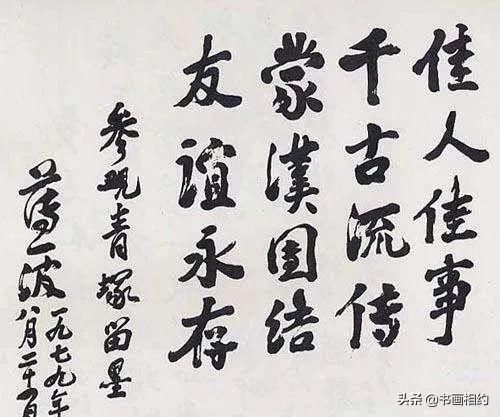 佳人佳事
千古流传
蒙漢团结
友谊永存
参观青塚留墨
薄一波
一九七九年
八月二十一日
头条 @书画相约